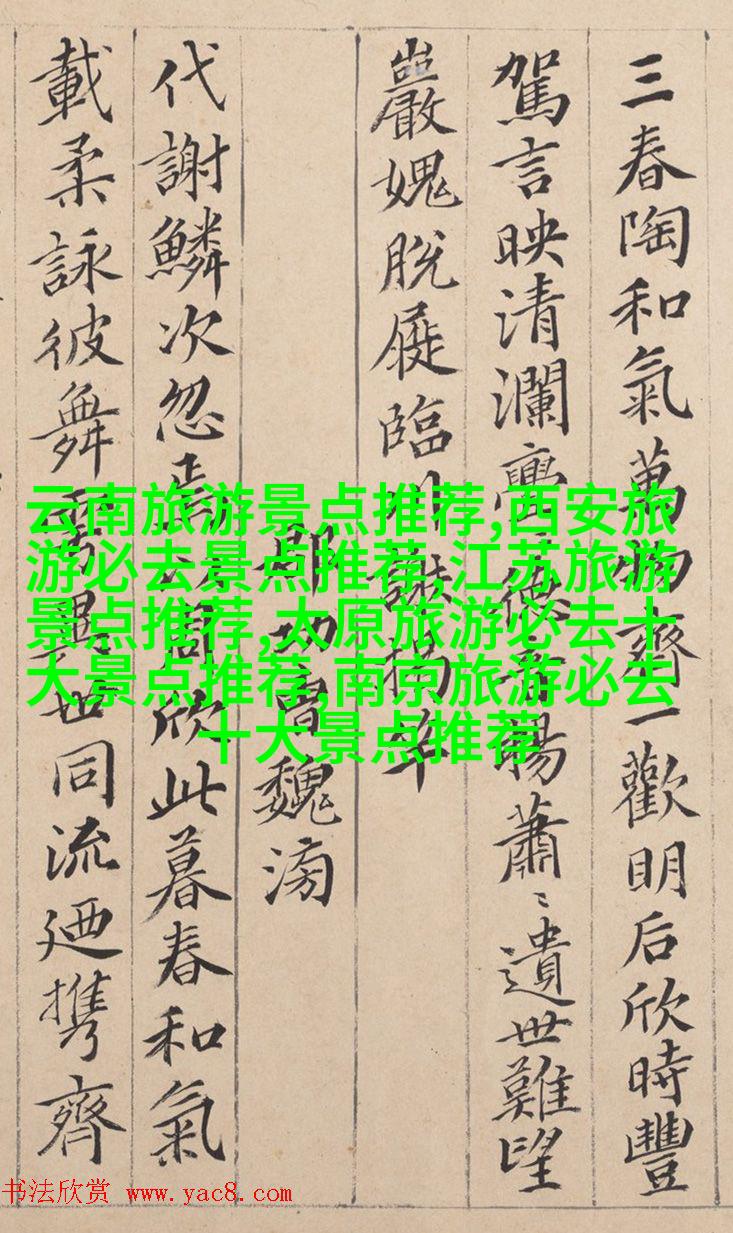 三春陶和氣萬物齊一歡明后欣時豐
駕言映清瀾亹〻德音暢蕭〻遺世難望
巖愧脫屣臨川謝揭竿
郡功曹魏滂
代謝鱗次忽焉以周欣此暮春和氣
載柔詠彼舞雩異世同流迺携齊
云南旅游景点推荐,西安旅
游必去景点推荐,江苏旅游
景点推荐,太原旅游必去十
大景点推荐,南京旅游必去
十大景点推荐
书法欣赏 www.yac8.com